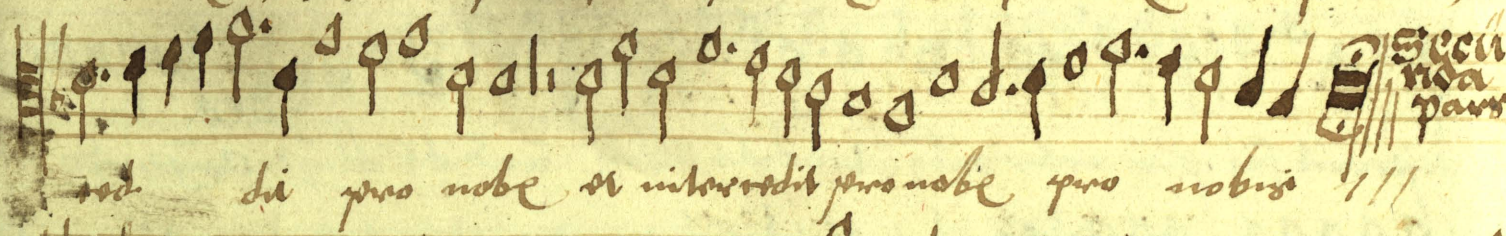 Secu
nda
pars
ced dit pro nobis et intercedit pro nobis pro nobis